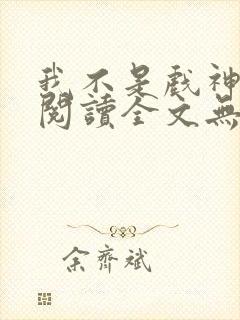 我不是戲神
閱讀全文無
余齊斌